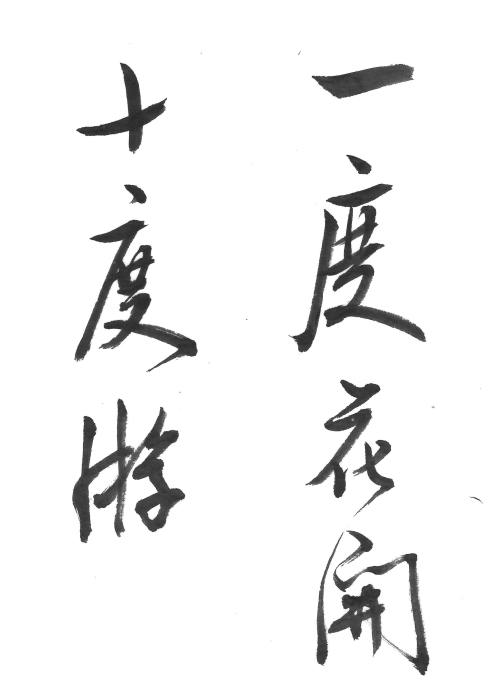 一度花開
十度游